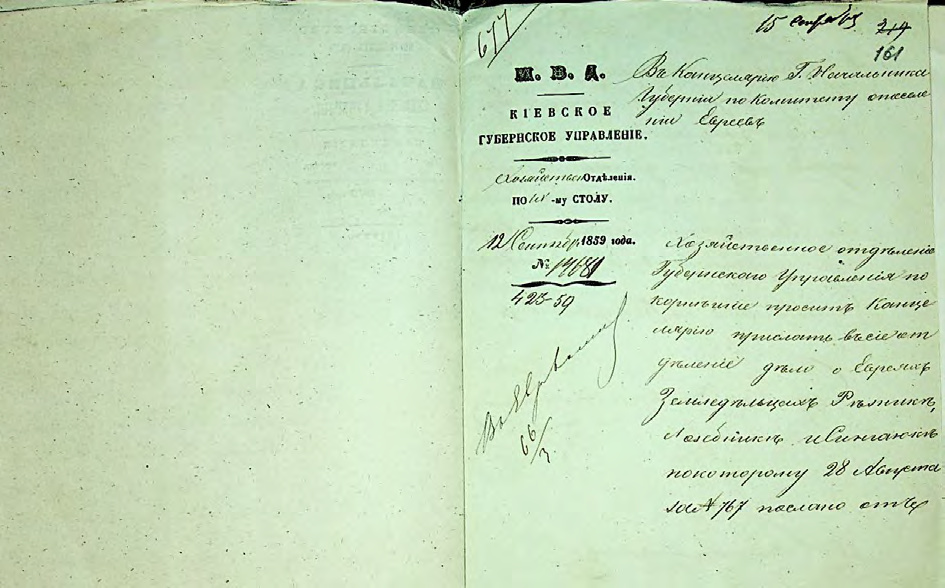 677
15 Сентяб
161
М. В. Д.
КІЕВСКОЕ
ГУБЕРНСКОЕ УПРАВЛЕНІЕ.
Хозяйствен ОТДѢЛЕНІЯ.
ПО -му СТОЛУ.
12 Сентябр 1859 года.
№ 14681
423-59
66/3
Въ Канцелярію Г. Начальника
Губерніи по Комитету о поселе
ніи Евреевъ
Хозяйственное отдѣленіе
Губернскаго Управленія по
проситъ Канце
лярію прислать въ сіе от
дѣленіе дѣло о Евреяхъ
Земледѣльцахъ Рѣзникѣ,
и
по которому 28 Августа
за № 767 послано отъ